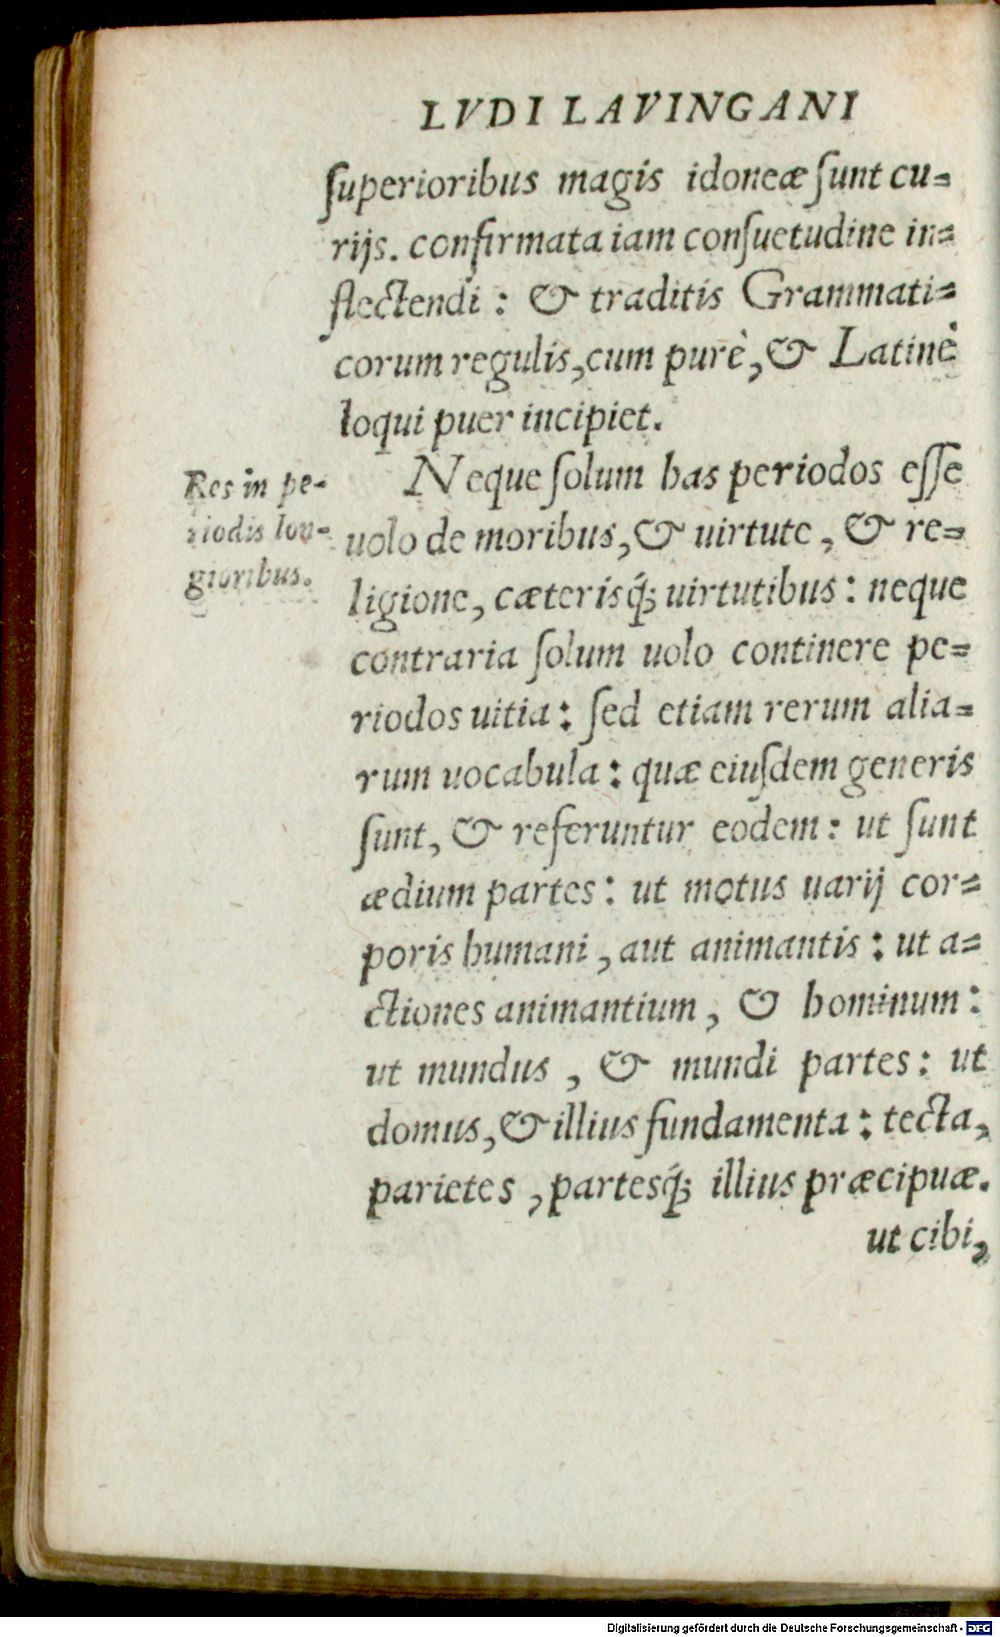 LVDI LAVINGANI
ſuperioribus magis idoneæ ſunt cu-
rijs. confirmata iam conſuetudine in-
flectendi: & traditis Grammati-
corum regulis, cum purè, & Latinè
loqui puer incipiet.
Neque ſolum has periodos eſſe
Res in pe-
riodis lon-
gioribus.
uolo de moribus, & uirtute, & re-
ligione, cæterisq́; uirtutibus: neque
contraria ſolum uolo continere pe-
riodos uitia: ſed etiam rerum alia-
rum uocabula: quæ eiuſdem generis
ſunt, & referuntur eodem: ut ſunt
ædium partes: ut motus uarij cor-
poris humani, aut animantis: ut a-
ctiones animantium, & hominum:
ut mundus, & mundi partes: ut
domus, & illius fundamenta: tecta,
parietes, partesq́; illius præcipuæ.
ut cibi,
Digitalisierung gefördert durch die Deutsche Forschungsgemeinschaft - DFG